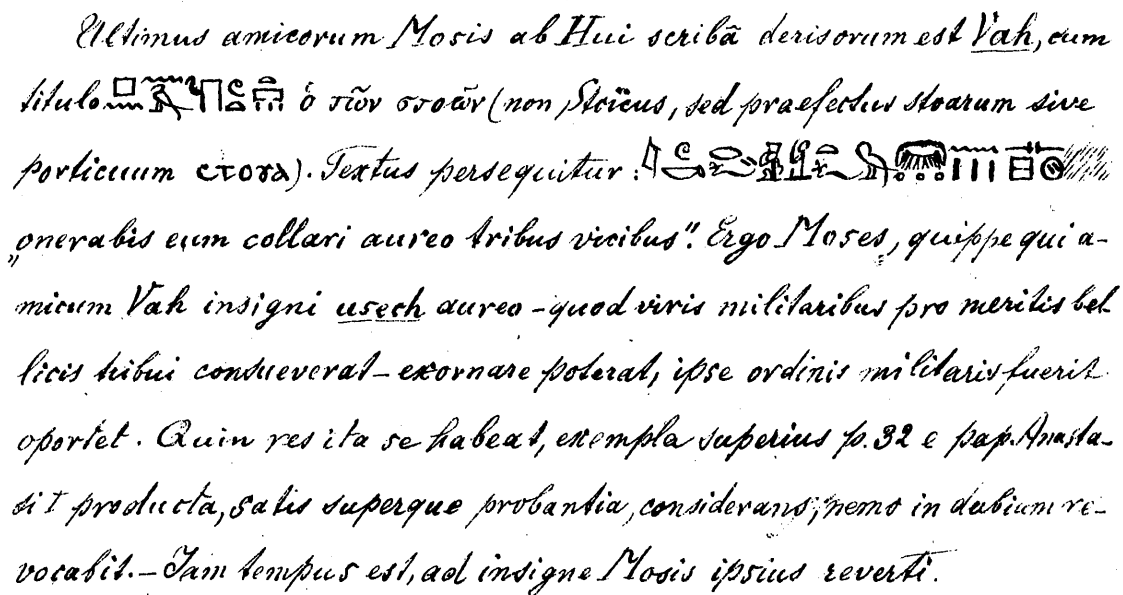 Ultimus amicorum Mosis ab Hui scribâ derisorum est Vah, cum
titulo ὁ τῶν στοῶν (non Stoicus, sed praefectus stoarum sive
porticuum ⲥⲧⲟⲩⲁ). Textus persequitur:
„onerabis eum collari aureo tribus vicibus". Ergo Moses, quippe qui a-
micum Vah insigni usech aureo - quod viris militaribus pro meritis bel-
licis tribui consueverat - exornare poterat, ipse ordinis militaris fuerit
oportet. Quin res ita se habeat, exempla superius p. 32 e pap. Anasta-
si I producta, satis superque probantia, considerans, nemo in dubium re-
vocabit. - Jam tempus est, ad insigne Mosis ipsius reverti.